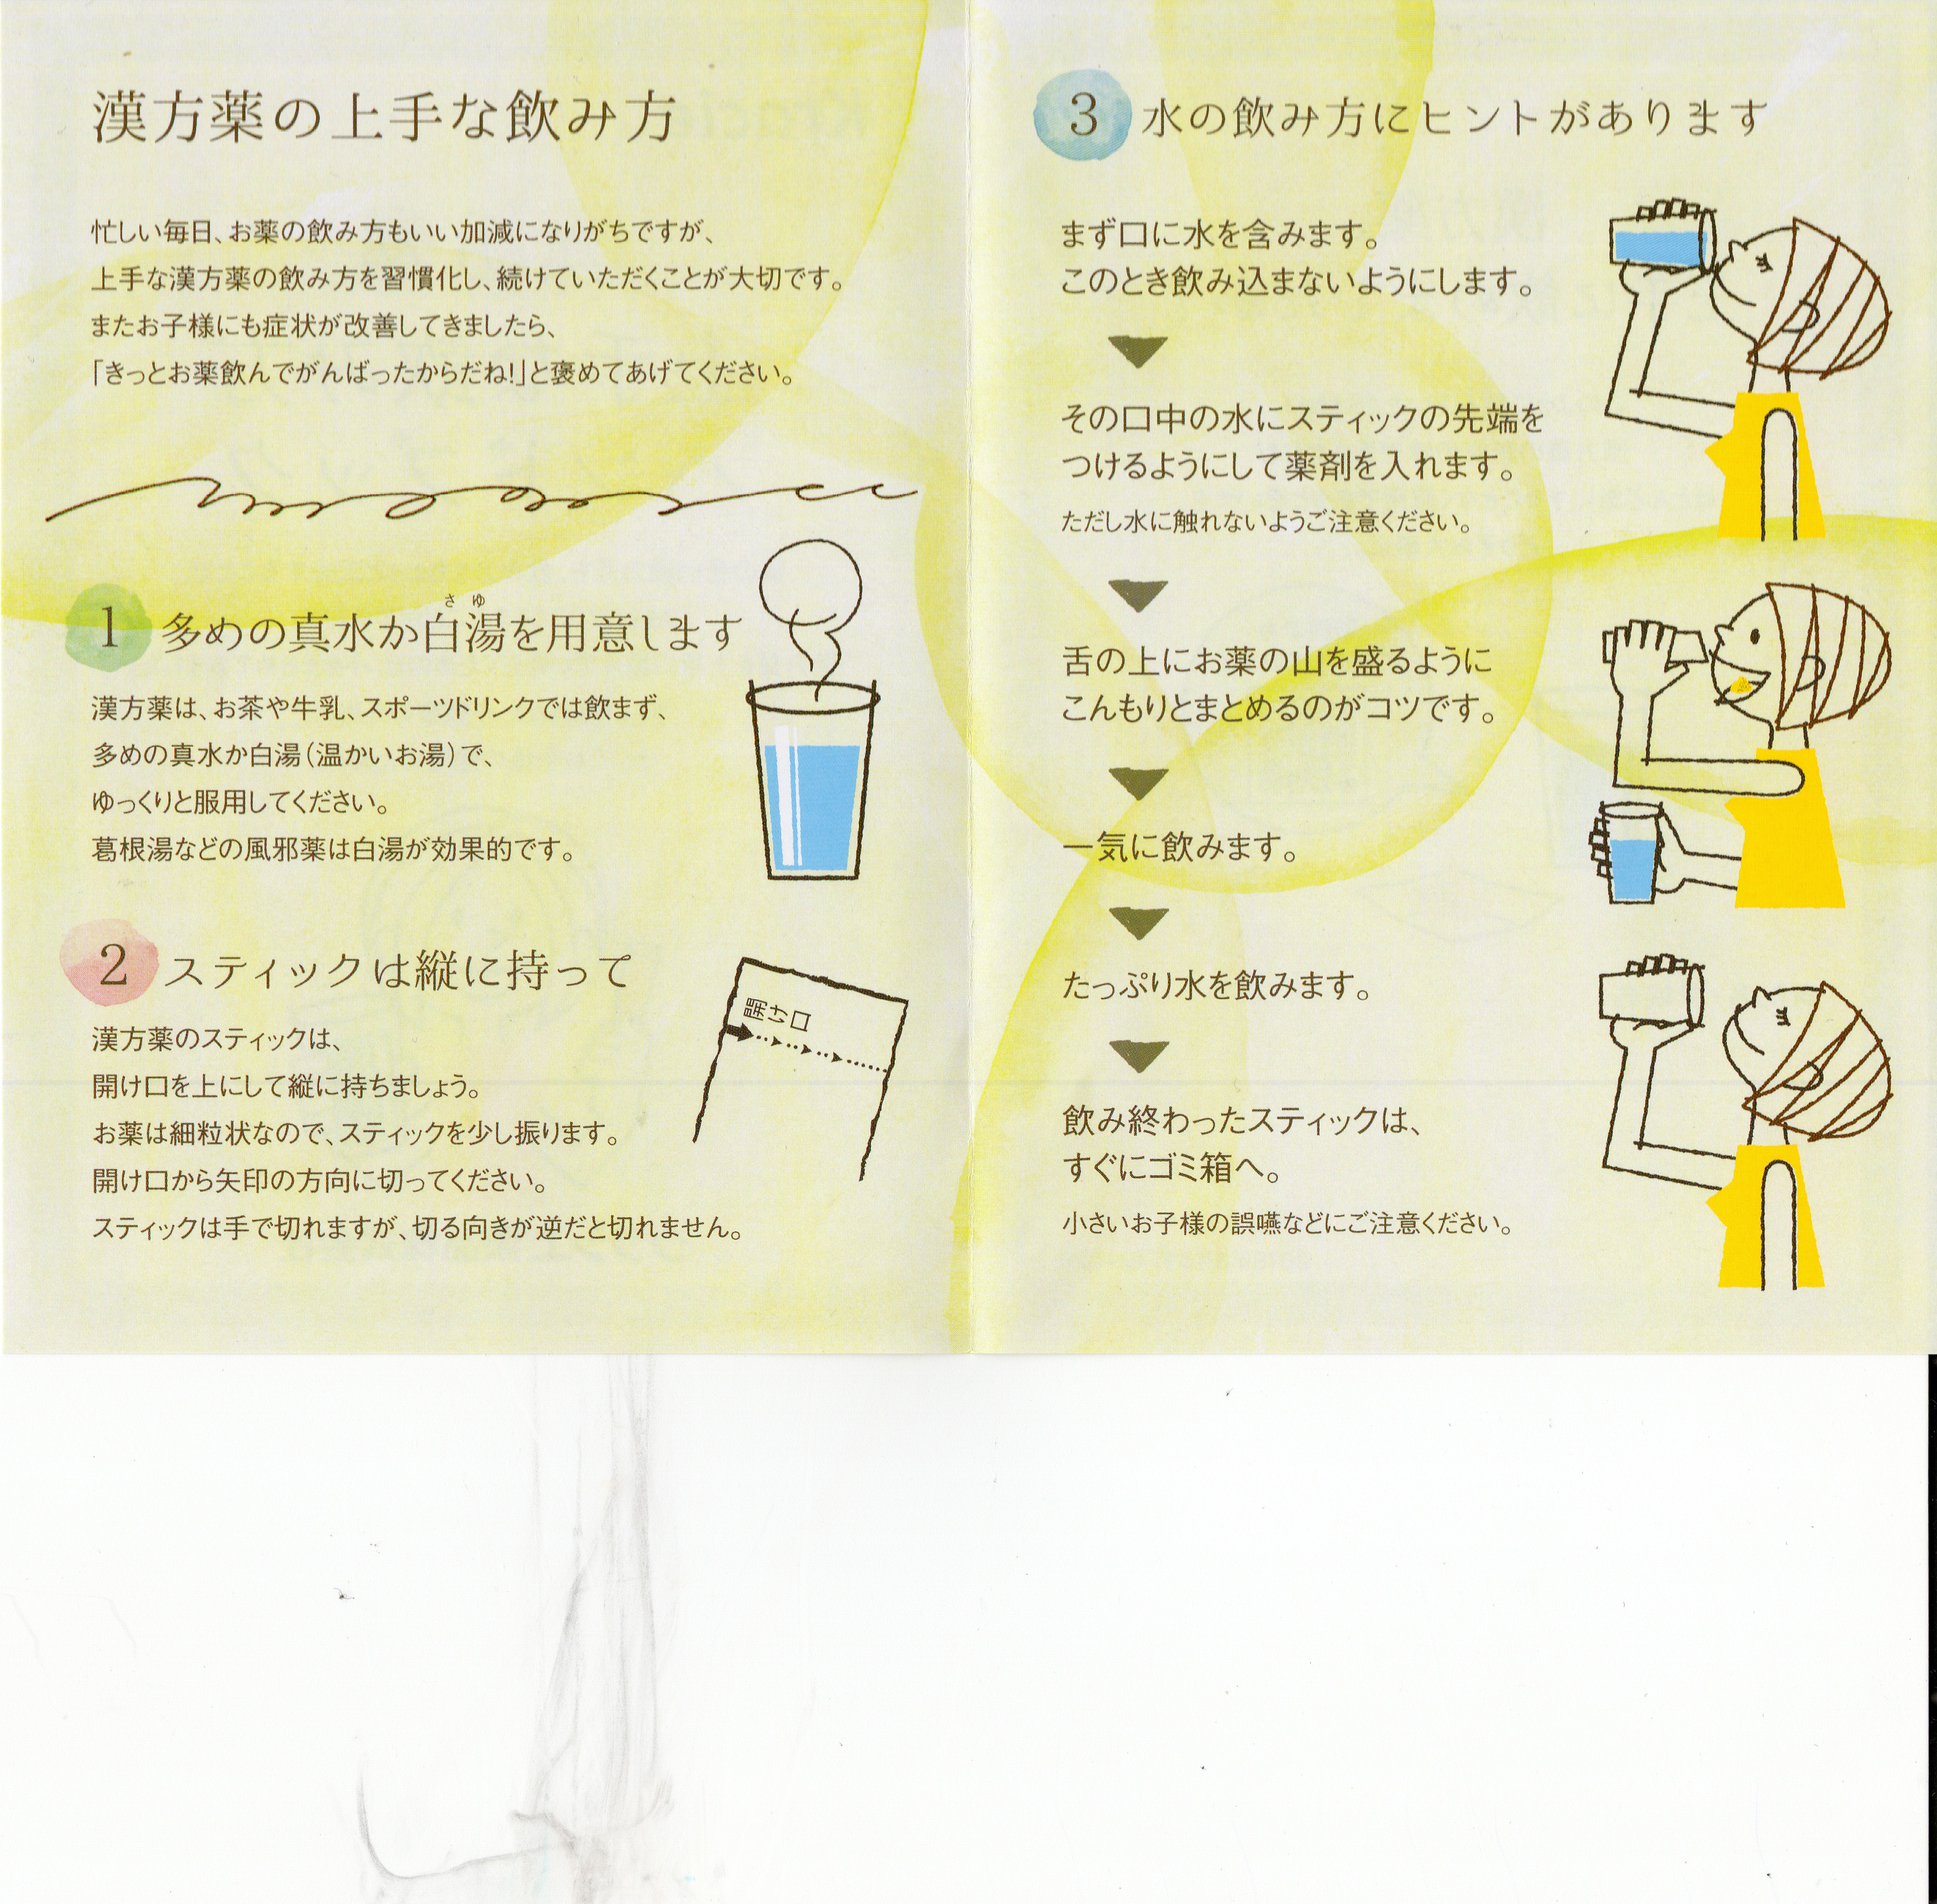 漢方薬の上手な飲み方
忙しい毎日、お薬の飲み方もいい加減になりがちですが、
上手な漢方薬の飲み方を習慣化し、続けていただくことが大切です。
またお子様にも症状が改善してきましたら、
「きっとお薬飲んでがんばったからだね!」と褒めてあげてください。
さゆ
1 多めの真水か白湯を用意します
漢方薬は、お茶や牛乳、スポーツドリンクでは飲まず、
多めの真水か白湯(温かいお湯)で、
ゆっくりと服用してください。
葛根湯などの風邪薬は白湯が効果的です。
2 スティックは縦に持って
漢方薬のスティックは、
開け口を上にして縦に持ちましょう。
お薬は細粒状なので、スティックを少し振ります。
開け口から矢印の方向に切ってください。
スティックは手で切れますが、切る向きが逆だと切れません。
開け口
3 水の飲み方にヒントがあります
まず口に水を含みます。
このとき飲み込まないようにします。
その口中の水にスティックの先端を
つけるようにして薬剤を入れます。
ただし水に触れないようご注意ください。
舌の上にお薬の山を盛るように
こんもりとまとめるのがコツです。
一気に飲みます。
たっぷり水を飲みます。
飲み終わったスティックは、
すぐにゴミ箱へ。
小さいお子様の誤嚥などにご注意ください。